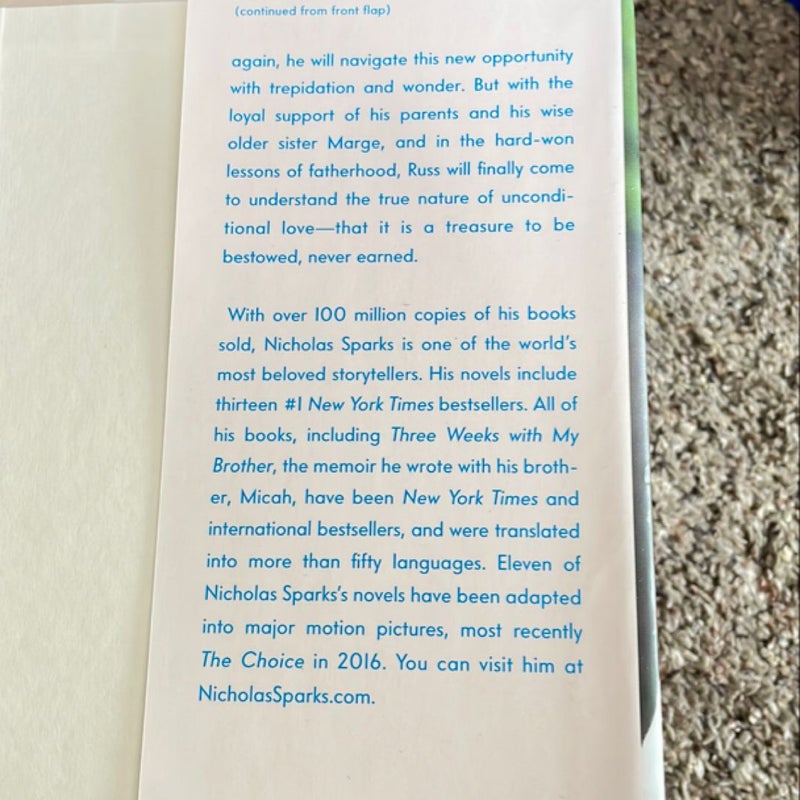 (continued from front flap)
again, he will navigate this new opportunity
with trepidation and wonder. But with the
loyal support of his parents and his wise
older sister Marge, and in the hard-won
lessons of fatherhood, Russ will finally come
to understand the true nature of uncondi-
tional love—that it is a treasure to be
bestowed, never earned.
With over 100 million copies of his books
sold, Nicholas Sparks is one of the world's
most beloved storytellers. His novels include
thirteen #1 New York Times bestsellers. All of
his books, including Three Weeks with My
Brother, the memoir he wrote with his broth-
er, Micah, have been New York Times and
international bestsellers, and were translated
into more than fifty languages. Eleven of
Nicholas Sparks's novels have been adapted
into major motion pictures, most recently
The Choice in 2016. You can visit him at
NicholasSparks.com.